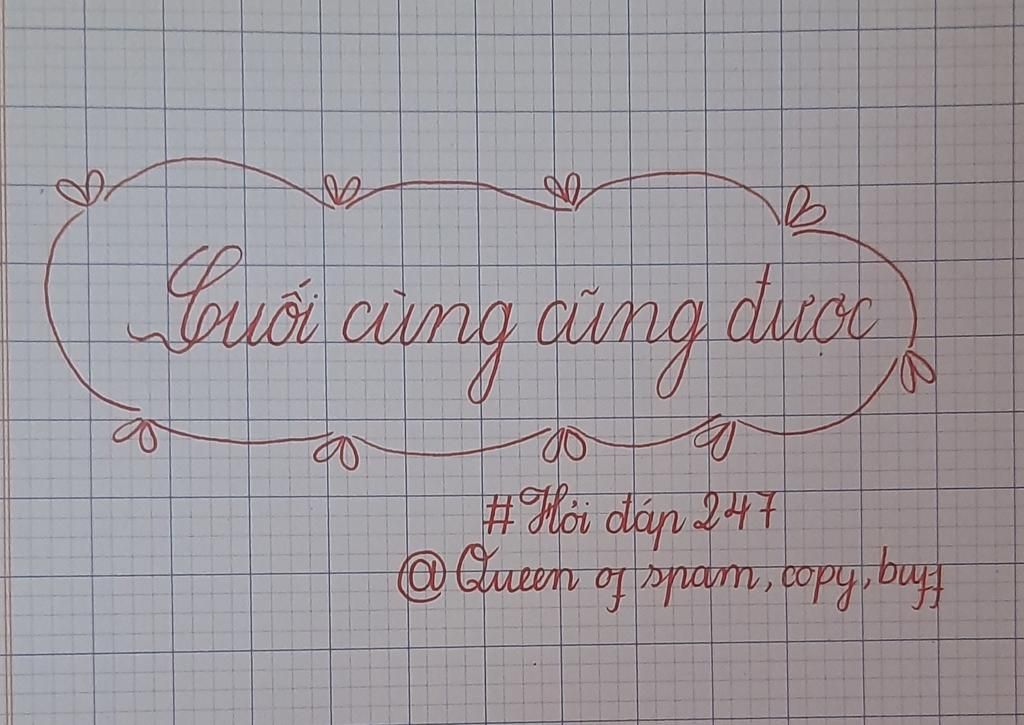 Cuối cùng cũng được
#Hỏi đáp 247
@Queen of spam, copy, buff